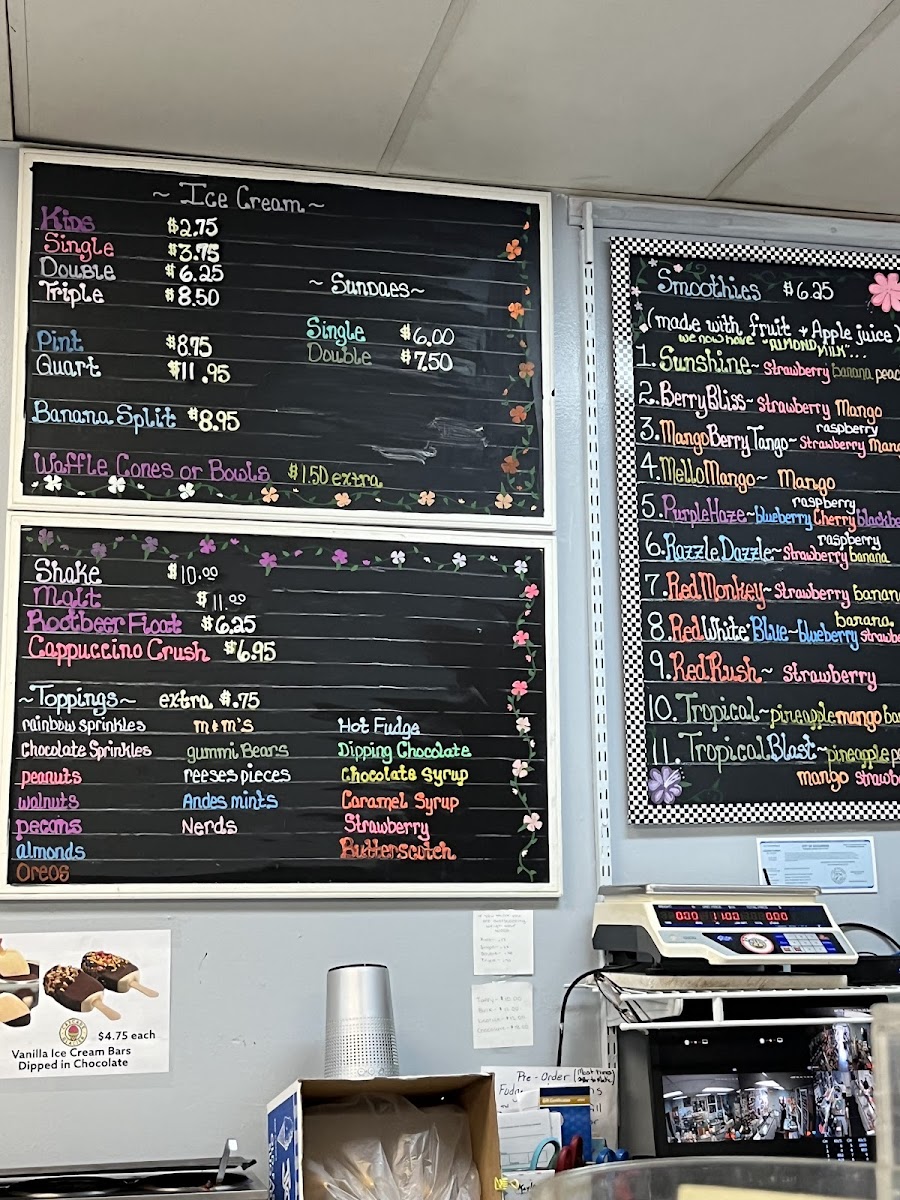 ~ Ice Cream ~
Kids $2.75
Single $3.75
Double $6.25
Triple $8.50
~ Sundaes ~
Single $6.00
Double $7.50
Pint $8.75
Quart $11.95
Banana Split $8.95
Waffle Cones or Bowls $1.50 extra
Shake $10.00
Malt $11.00
Rootbeer Float $6.25
Cappuccino Crush $6.95
~Toppings~ extra $.75
rainbow sprinkles m&m's Hot Fudge
Chocolate Sprinkles gummi Bears Dipping Chocolate
peanuts reeses pieces Chocolate Syrup
walnuts Andes mints Caramel Syrup
pecans Nerds Strawberry
almonds Butterscotch
Oreos
Smoothies $6.25
(made with fruit + Apple juice)
we now have "ALMOND MILK"...
1. Sunshine~ strawberry banana peac
2. BerryBliss~ strawberry Mango
raspberry
3. MangoBerryTango~ strawberry Mang
4. MelloMango~ Mango
raspberry
5. PurpleHaze~ blueberry Cherry blackbe
raspberry
6. RazzleDazzle~ strawberry banana
7. RedMonkey~ strawberry banan
banana
8. RedWhite Blue~ blueberry strawbe
9. RedRush~ strawberry
10. Tropical~ pineapple mango ba
11. TropicalBlast~ pineapple pe
mango strawb
$4.75 each
Vanilla Ice Cream Bars
Dipped in Chocolate
0.00 11.00 0.00
Pre-Order